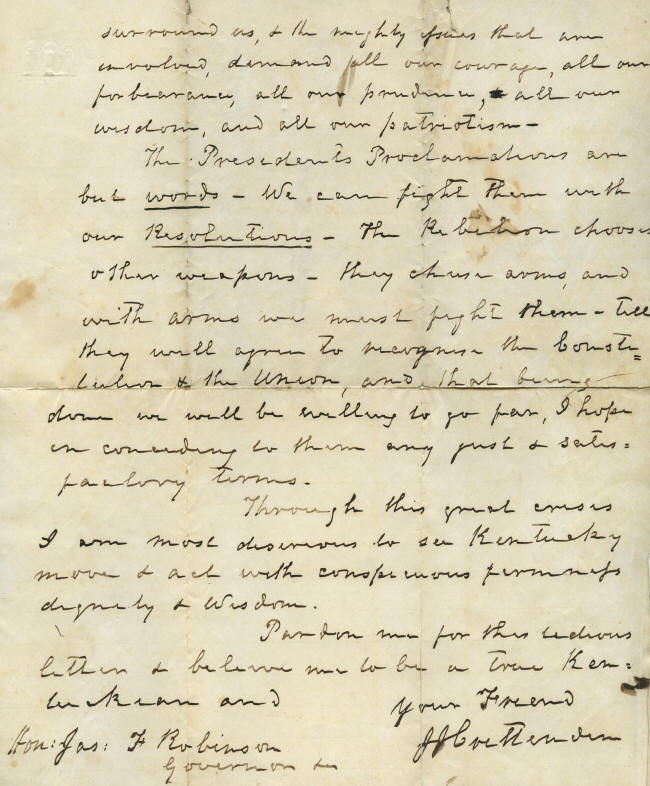 surround us, & the mighty issues that are
involved, demand all our courage, all our
forbearance, all our prudence, & all our
wisdom, and all our patriotism -
The Presidents Proclamations are
but words - We can fight them with
our Resolutions - The Rebelion chooses
other weapons - they chuse arms, and
with arms we must fight them - till
they will agree to recognise the Consti=
tution & the Union, and, that being
done we will be willing to go far, I hope
in conceding to them any just & satis=
factory terms.
Through this great crisis
I am most desirious to see Kentucky
move & act with conspicuous firmness
dignity & Wisdom.
Pardon me for this tedious
letter & believe me to be a true Ken=
tuckian and
Your Friend
J J Crittenden
Hon: Jas: F Robinson
Governor &c